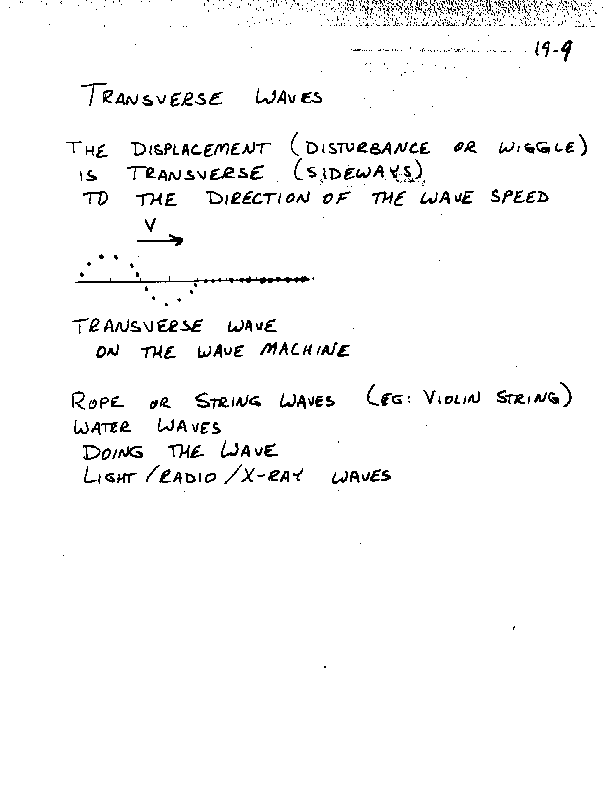 19-9
TRANSVERSE WAVES
THE DISPLACEMENT (DISTURBANCE OR WIGGLE)
IS TRANSVERSE (SIDEWAYS)
TO THE DIRECTION OF THE WAVE SPEED
V
TRANSVERSE WAVE
ON THE WAVE MACHINE
ROPE OR STRING WAVES (EG: VIOLIN STRING)
WATER WAVES
DOING THE WAVE
LIGHT/RADIO/X-RAY WAVES